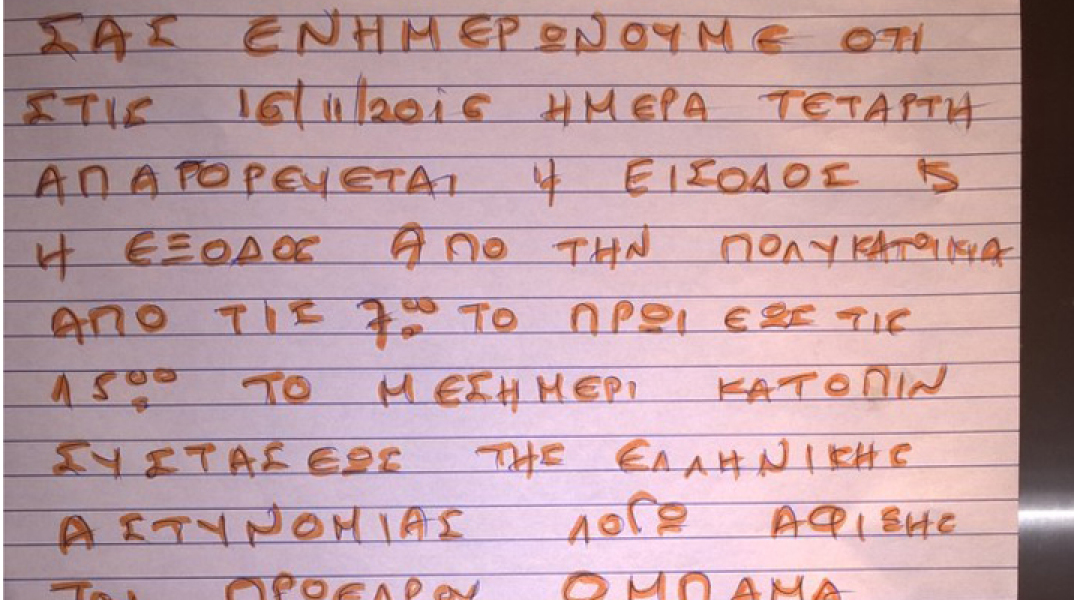 ΣΑΣ ΕΝΗΜΕΡΩΝΟΥΜΕ ΟΤΙ
ΣΤΙΣ 16/11/2016 ΗΜΕΡΑ ΤΕΤΑΡΤΗ
ΑΠΑΓΟΡΕΥΕΤΑΙ Η ΕΙΣΟΔΟΣ Κ
Η ΕΞΟΔΟΣ ΑΠΟ ΤΗΝ ΠΟΛΥΚΑΤΟΙΚΙΑ
ΑΠΟ ΤΙΣ 7:00 ΤΟ ΠΡΩΙ ΕΩΣ ΤΙΣ
15:00 ΤΟ ΜΕΣΗΜΕΡΙ ΚΑΤΟΠΙΝ
ΣΥΣΤΑΣΕΩΣ ΤΗΣ ΕΛΛΗΝΙΚΗΣ
ΑΣΤΥΝΟΜΙΑΣ ΛΟΓΩ ΑΦΙΞΗΣ
ΤΟΥ ΠΡΟΕΔΡΟΥ ΟΜΠΑΜΑ